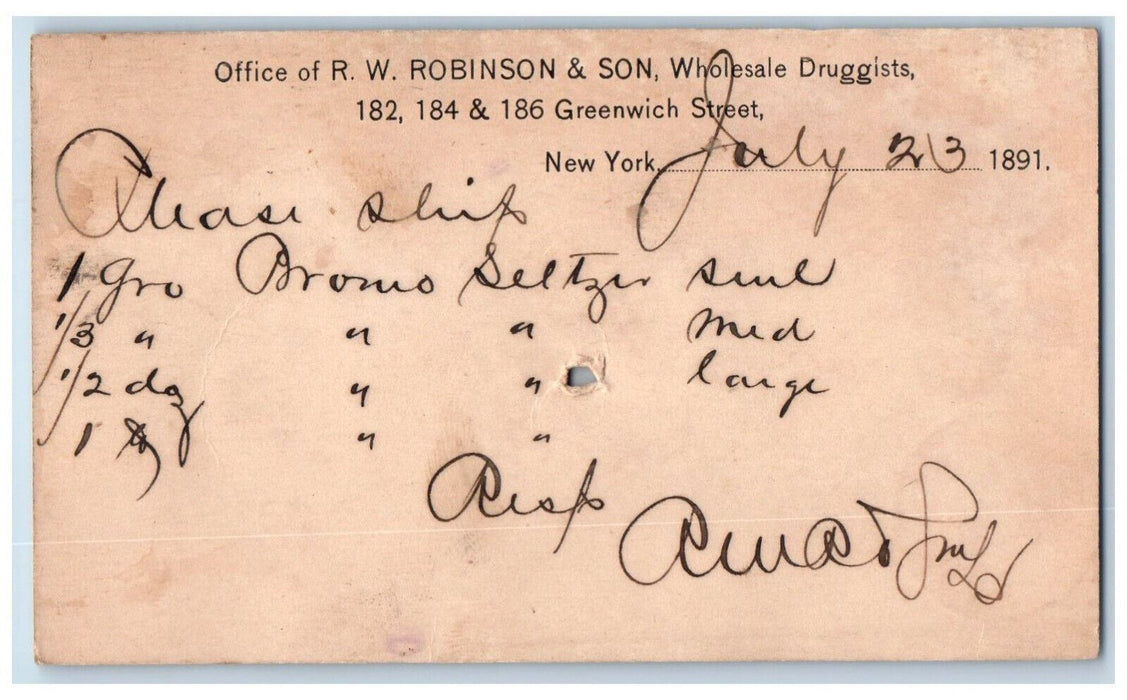 Office of R. W. ROBINSON & SON, Wholesale Druggists,
182, 184 & 186 Greenwich Street,
New York, July 23 1891.
Please ship
1 Gro Bromo Seltzer sml
1/3 " " " med
1/2 dz " " large
1 " "
Resp
RWR &